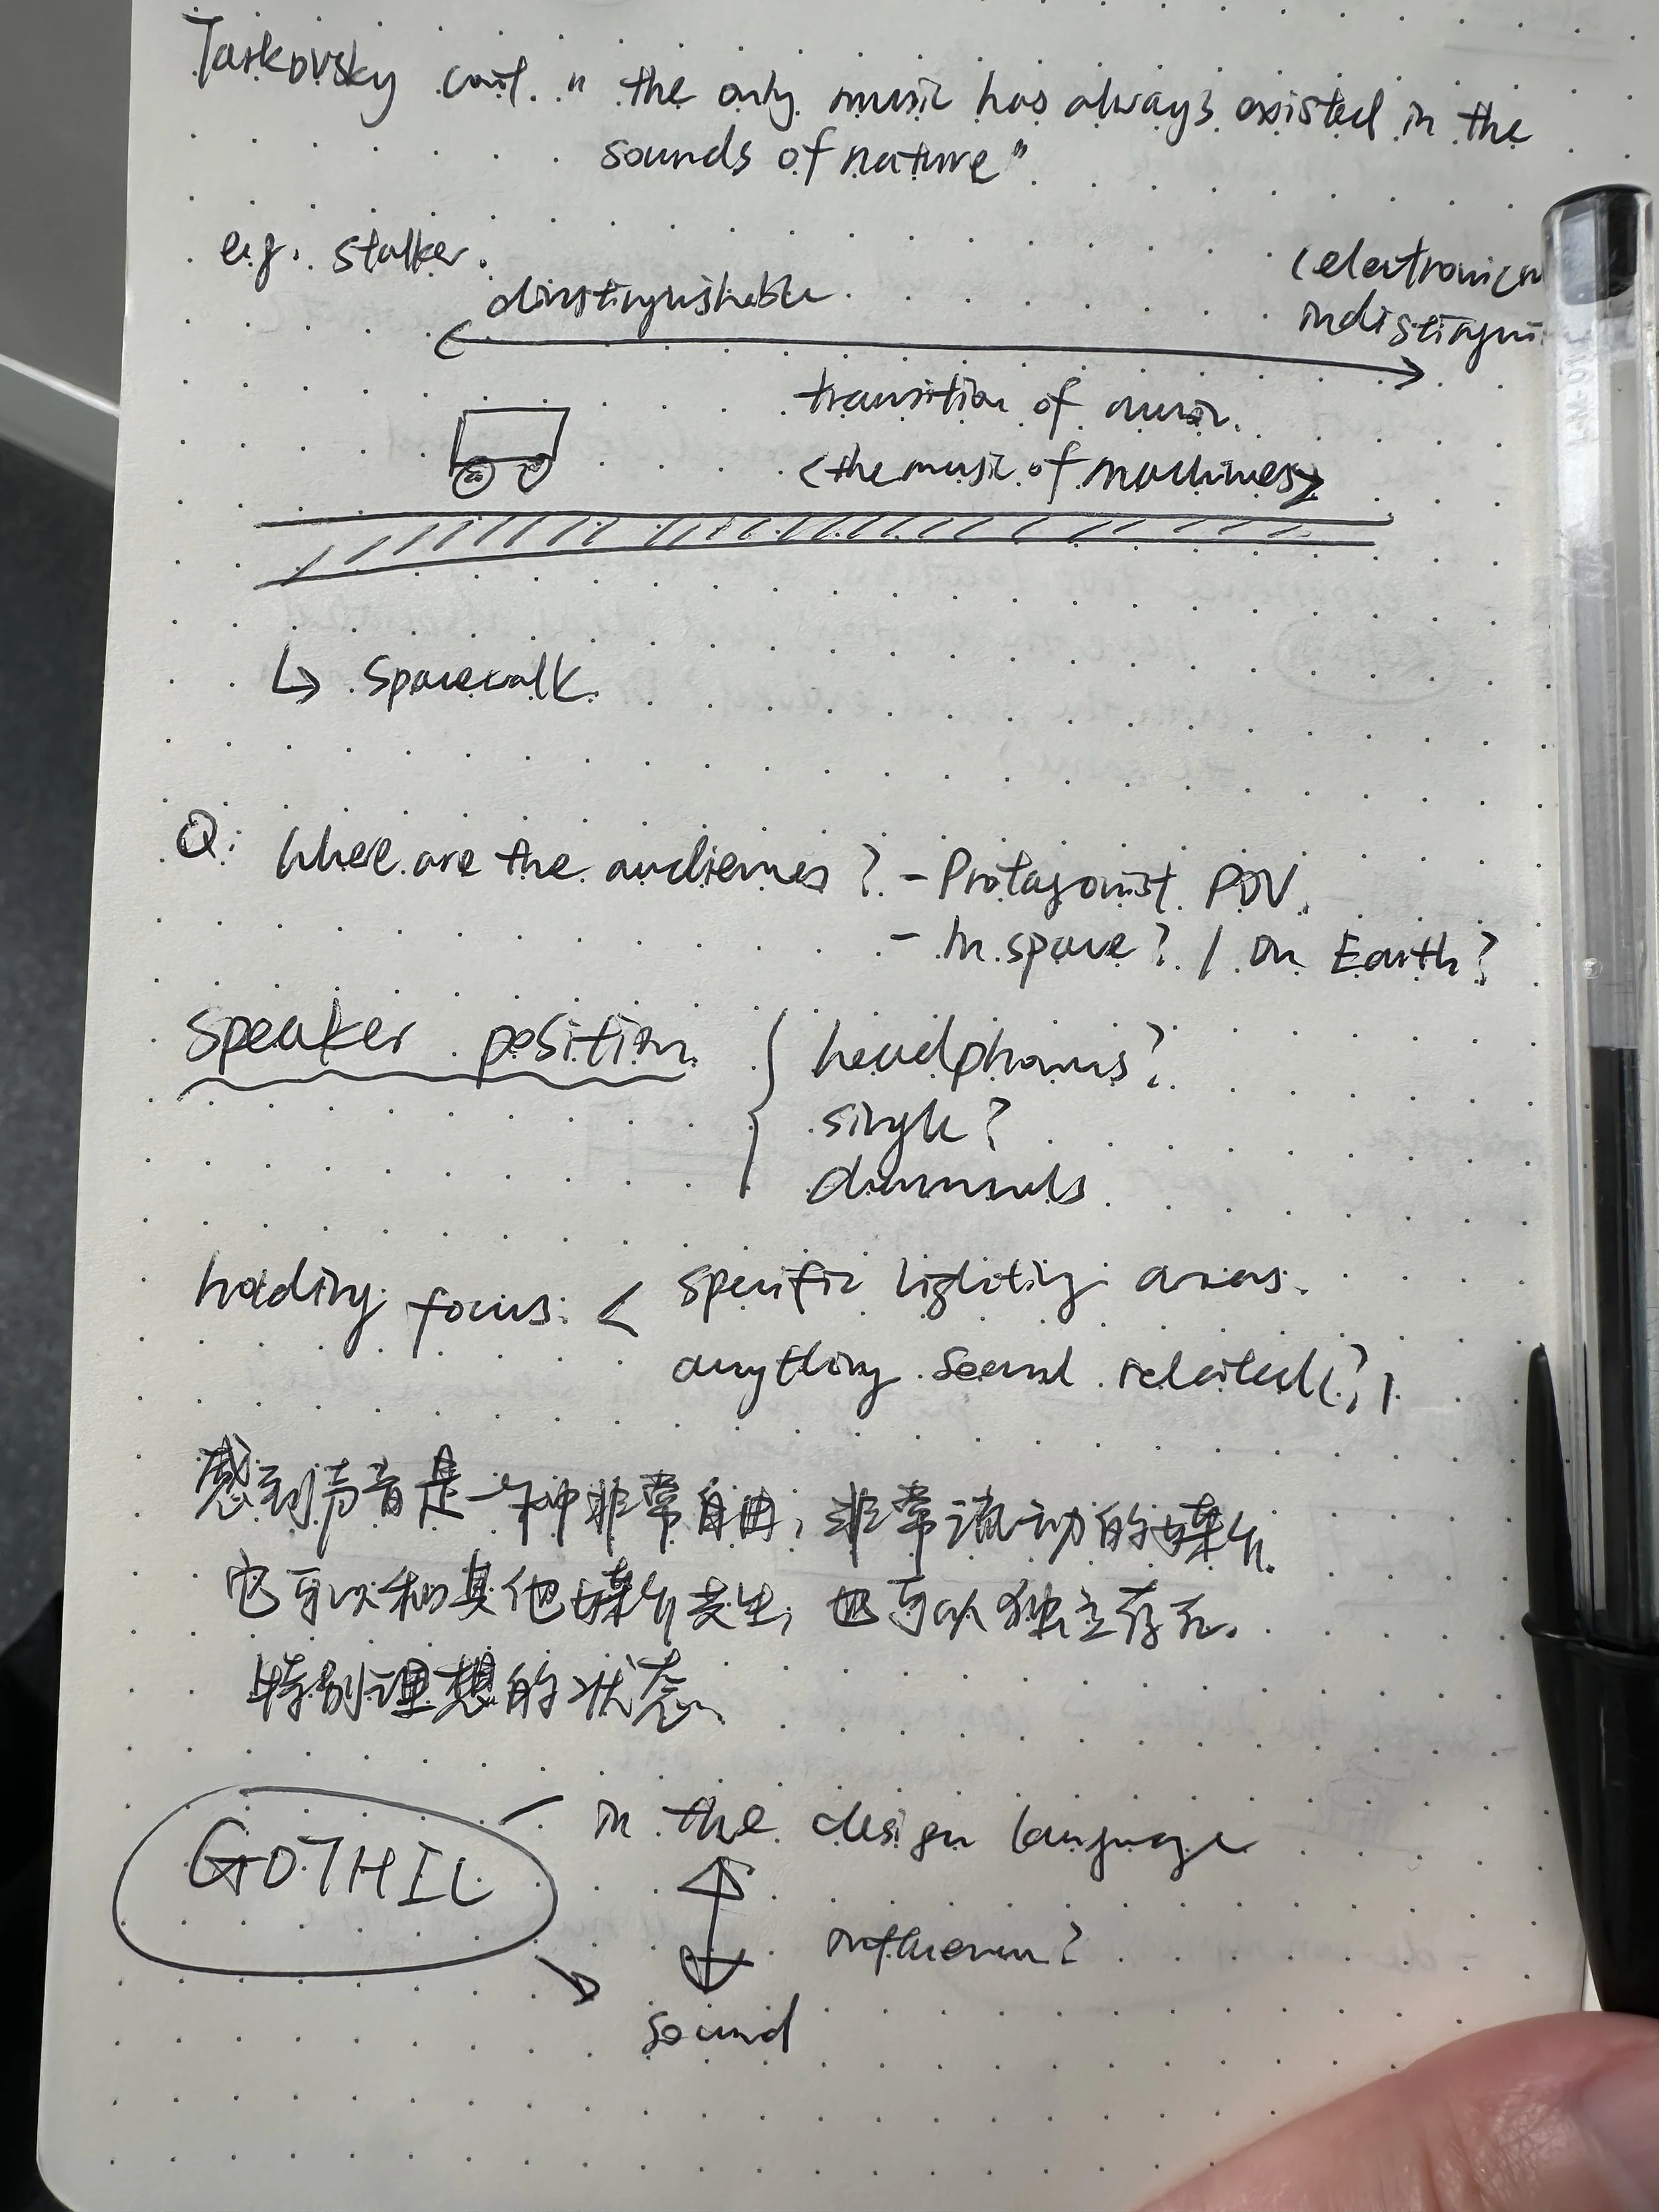 Tarkovsky cont. " the only music has always existed in the
sounds of nature"
e.g. stalker.
dinstinguishable
(electronica
indistingui
transition of music.
<the music of machines>
↳ Spacewalk.
Q: Where are the audiences? - Protagonist POV.
- In space? / On Earth?
Speaker position
headphones?
single?
diamonds
focus: < specific lighting areas.
anything sound related(?)
感到声音是一种非常自由，非常流动的媒介.
它可以和其他媒介共生，也可以独立存在.
特别理想的状态
GOTHIC
- in the design language
influence?
sound